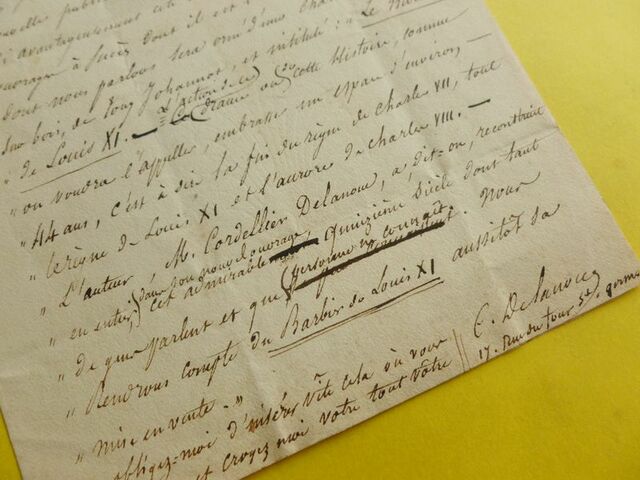 velle publi
avantageusement cité dont il est
ouvrage à succès sera orné d'une char
dont nous parlons
sur bois, de Tony Johannot, et intitulé : Le Bar
de Louis XI. — L'action de ce Drame ou de cette Histoire, comme
" on voudra l'appeller, embrasse un espace d'environ
" 44 ans, c'est à dire la fin du règne de Charles VII, tout
" le règne de Louis XI et l'aurore de Charles VIII. —
" L'auteur, M. Cordellier Delanoue, a, dit-on, reconstruit
" en entier, dans son nouvel ouvrage, cet admirable Quinzième Siècle dont tant
" de gens parlent et que personne ne connait. Nous
" Rendrons compte du Barbier de Louis XI aussitôt sa
" mise en vente. "
obligez-moi d'insérer vite cela où vous
et croyez moi votre tout vôtre
C. Delanoue
17, rue du four St. germ